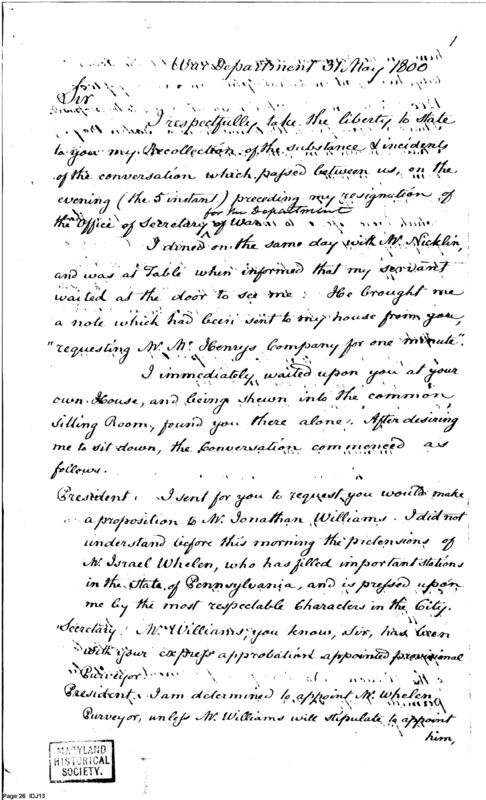 1
War Department 31 May 1800
Sir
I respectfully take the liberty to state
to you my Recollection of the substance & incidents
of the conversation which passed between us, on the
evening (the 5 instant) preceding my resignation of
for the Department
the Office of Secretary of War.
I dined on the same day with Mr. Nicklin,
and was at Table when informed that my servant
waited at the door to see me: He brought me
a note which had been sent to my house from you,
"requesting Mr. Mc Henrys Company for one minute".
I immediately waited upon you at your
own House, and being shewn into the common
Sitting Room, found you there alone. After desiring
me to sit down, the Conversation commenced as
follows.
President. I sent for you to request you would make
a proposition to Mr. Jonathan Williams. I did not
understand before this morning the pretensions of
Mr. Israel Whelen, who has filled important stations
in the State of Pennsylvania, and is pressed upon
me by the most respectable Characters in the City.
Secretary. Mr. Williams, you know, Sir, has been
with your express approbation appointed provisional
Purveyor.
President. I am determined to appoint Mr. Whelen
Purveyor, unless Mr. Williams will stipulate to appoint
him,
MARYLAND
HISTORICAL
SOCIETY.
Page 26 IDJ13